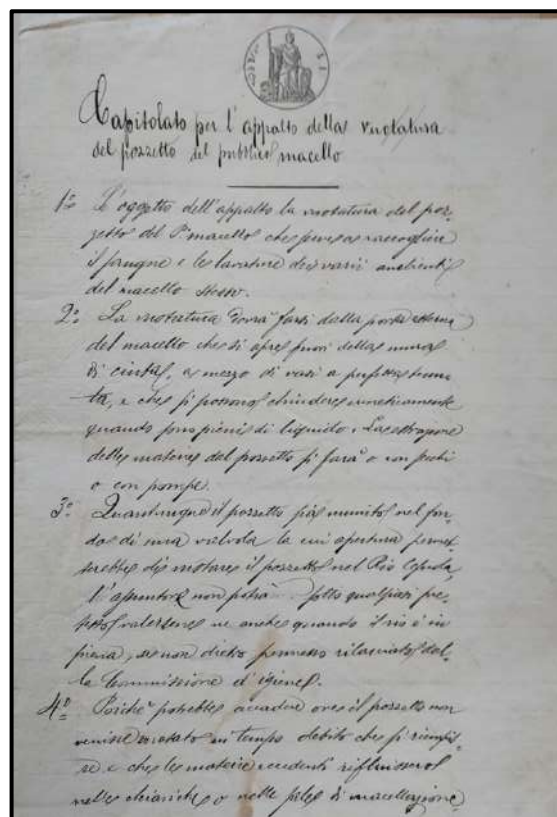 Capitolato per l'appalto della vuotatura
del pozzetto del pubblico macello
1º È oggetto dell'appalto la vuotatura del poz-
zetto del Pº macello che serve a raccogliere
il sangue e le lavature dei varii ambienti
del macello stesso.
2º La vuotatura dovrà farsi dalla porta esterna
del macello che si apre fuori della mura
di cinta, a mezzo di vasi a perfetta tenu-
ta, e che si possono chiudere ermeticamente
quando sono pieni di liquido. La estrazione
delle materie dal pozzetto si farà o con secchi
o con pompe.
3º Quantunque il pozzetto sia munito nel fon-
do di una valvola la cui apertura permet-
terebbe di vuotare il pozzetto nel Rio
l'assuntore non potrà sotto qualsiasi pre-
testo valersene ne anche quando il rio è in
piena, se non dietro permesso rilasciato dal-
la Commissione d'igiene.
4º Poichè potrebbe accadere ove il pozzetto non
venisse vuotato in tempo debito che si riempis-
se e che le materie eccedenti rifluissero
nelle chiaviche o nelle sale di macellazione